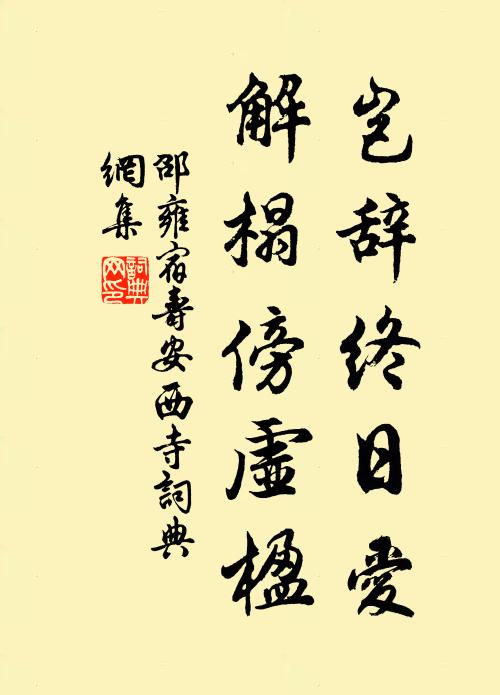 岂辞终日爱
解榻傍虚楹
邵雍宿寿安西寺詞典
網集
詞典
网印